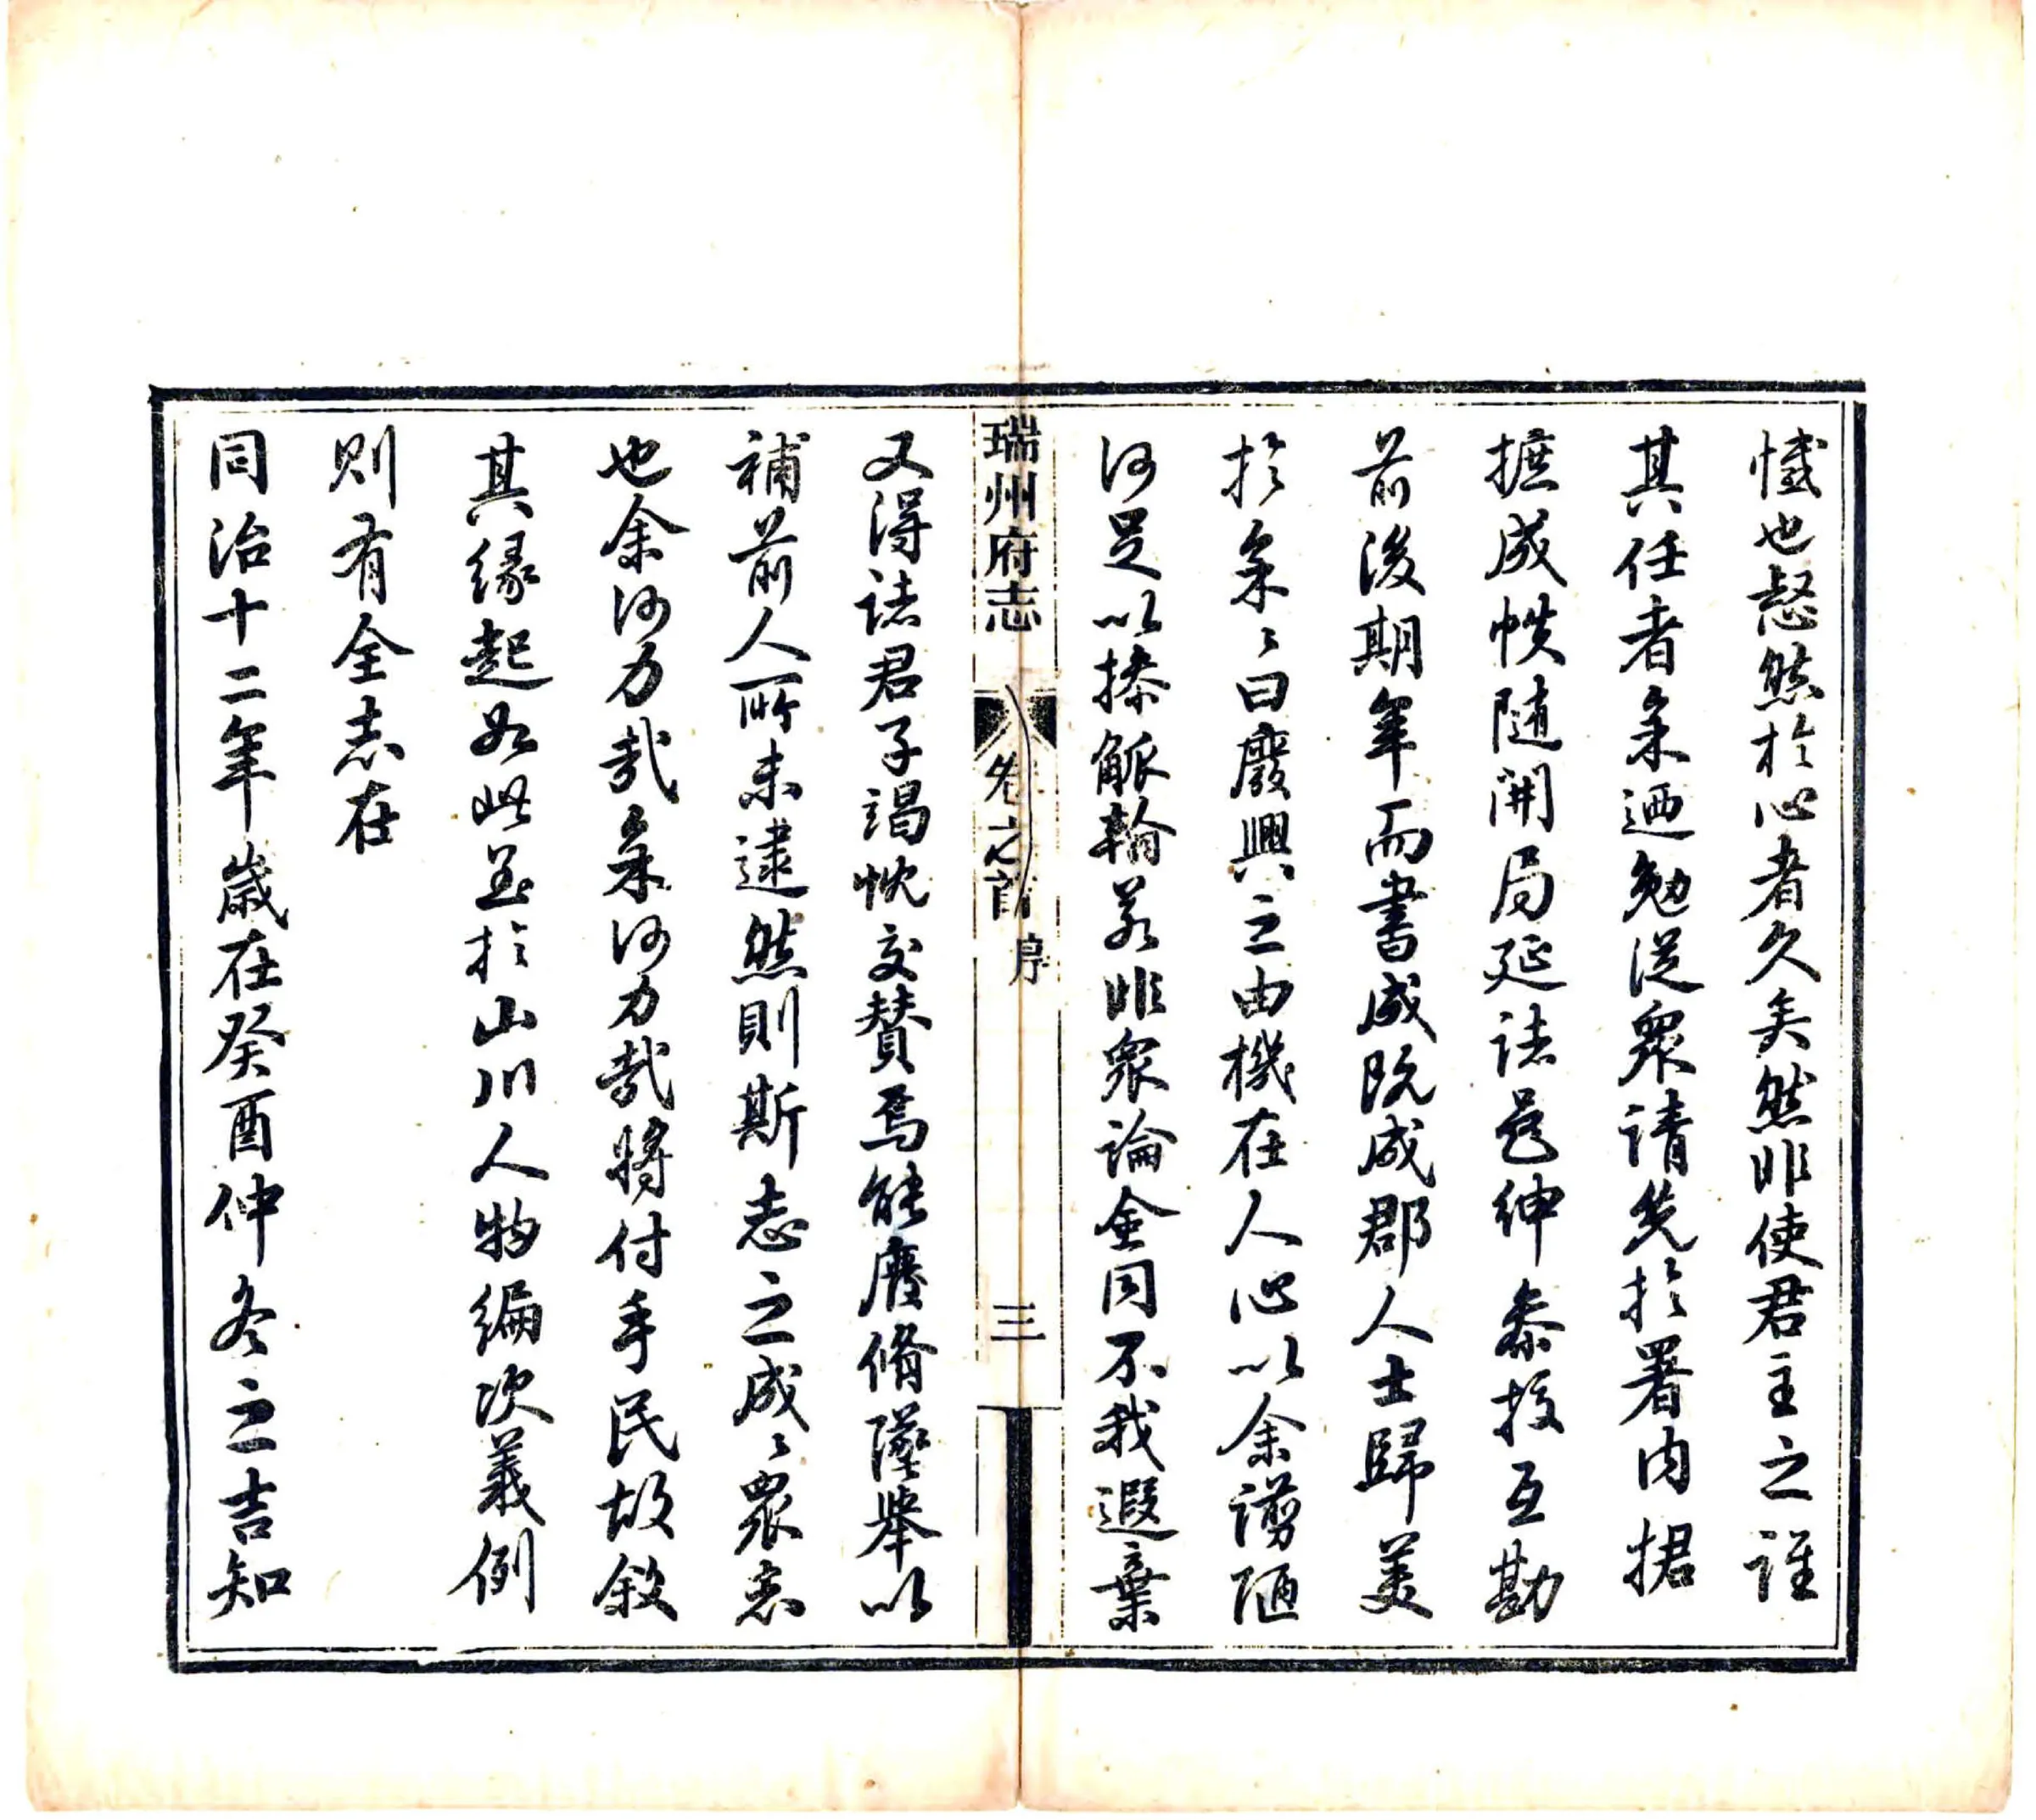 憾也惄然於心者久矣然非使君主之誰
其任者余迺勉從眾請先於署內捃
摭成帙隨開局延諸邑紳叅校互勘
前後期年而書成既成郡人士歸美
於余〻曰廢興之由機在人心以余謭陋
何足以捧觚翰若非眾論僉同不我遐棄
瑞州府志
卷之首 序
三
又得諸君子竭忱交贊焉能廢脩墜舉以
補前人所未逮然則斯志之成〻眾志
也余何力哉余何力哉將付手民故敘
其緣起如此至於山川人物編次義例
則有全志在
同治十二年歲在癸酉仲冬之吉知